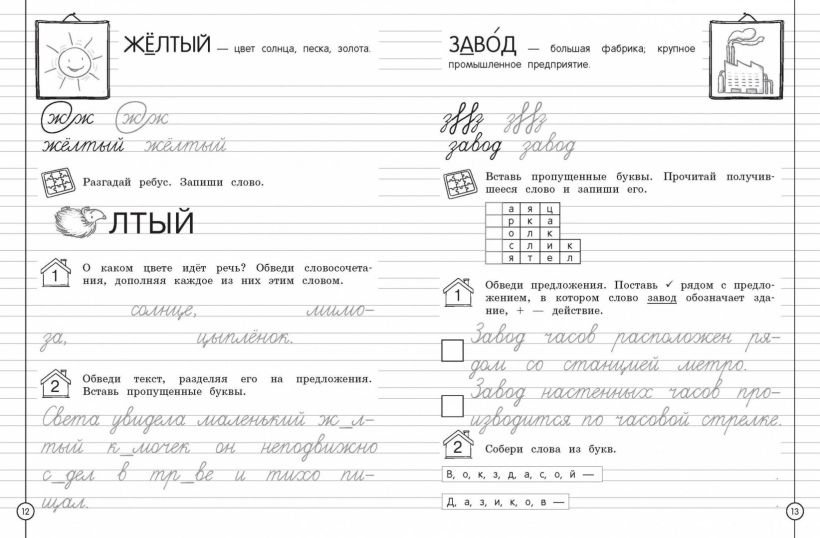 ЖЁЛТЫЙ — цвет солнца, песка, золота.
жж жж
жёлтый жёлтый
Разгадай ребус. Запиши слово.
ЛТЫЙ
1
О каком цвете идёт речь? Обведи словосочета-
ния, дополняя каждое из них этим словом.
солнце, мимо-
за, цыплёнок.
2
Обведи текст, разделяя его на предложения.
Вставь пропущенные буквы.
Света увидела маленький ж_л-
тый к_мочек он неподвижно
с_дел в тр_ве и тихо пи-
щал.
12
ЗАВО́Д — большая фабрика; крупное
промышленное предприятие.
завод завод
Вставь пропущенные буквы. Прочитай получив-
шееся слово и запиши его.
а я ц
р к а
о л к
с л и к
я т е л
1
Обведи предложения. Поставь ✓ рядом с предло-
жением, в котором слово завод обозначает зда-
ние, + — действие.
Завод часов расположен ря-
дом со станцией метро.
Завод настенных часов про-
изводится по часовой стрелке.
2
Собери слова из букв.
В, о, к, з, д, а, с, о, й —
Д, а, з, и, к, о, в —
13